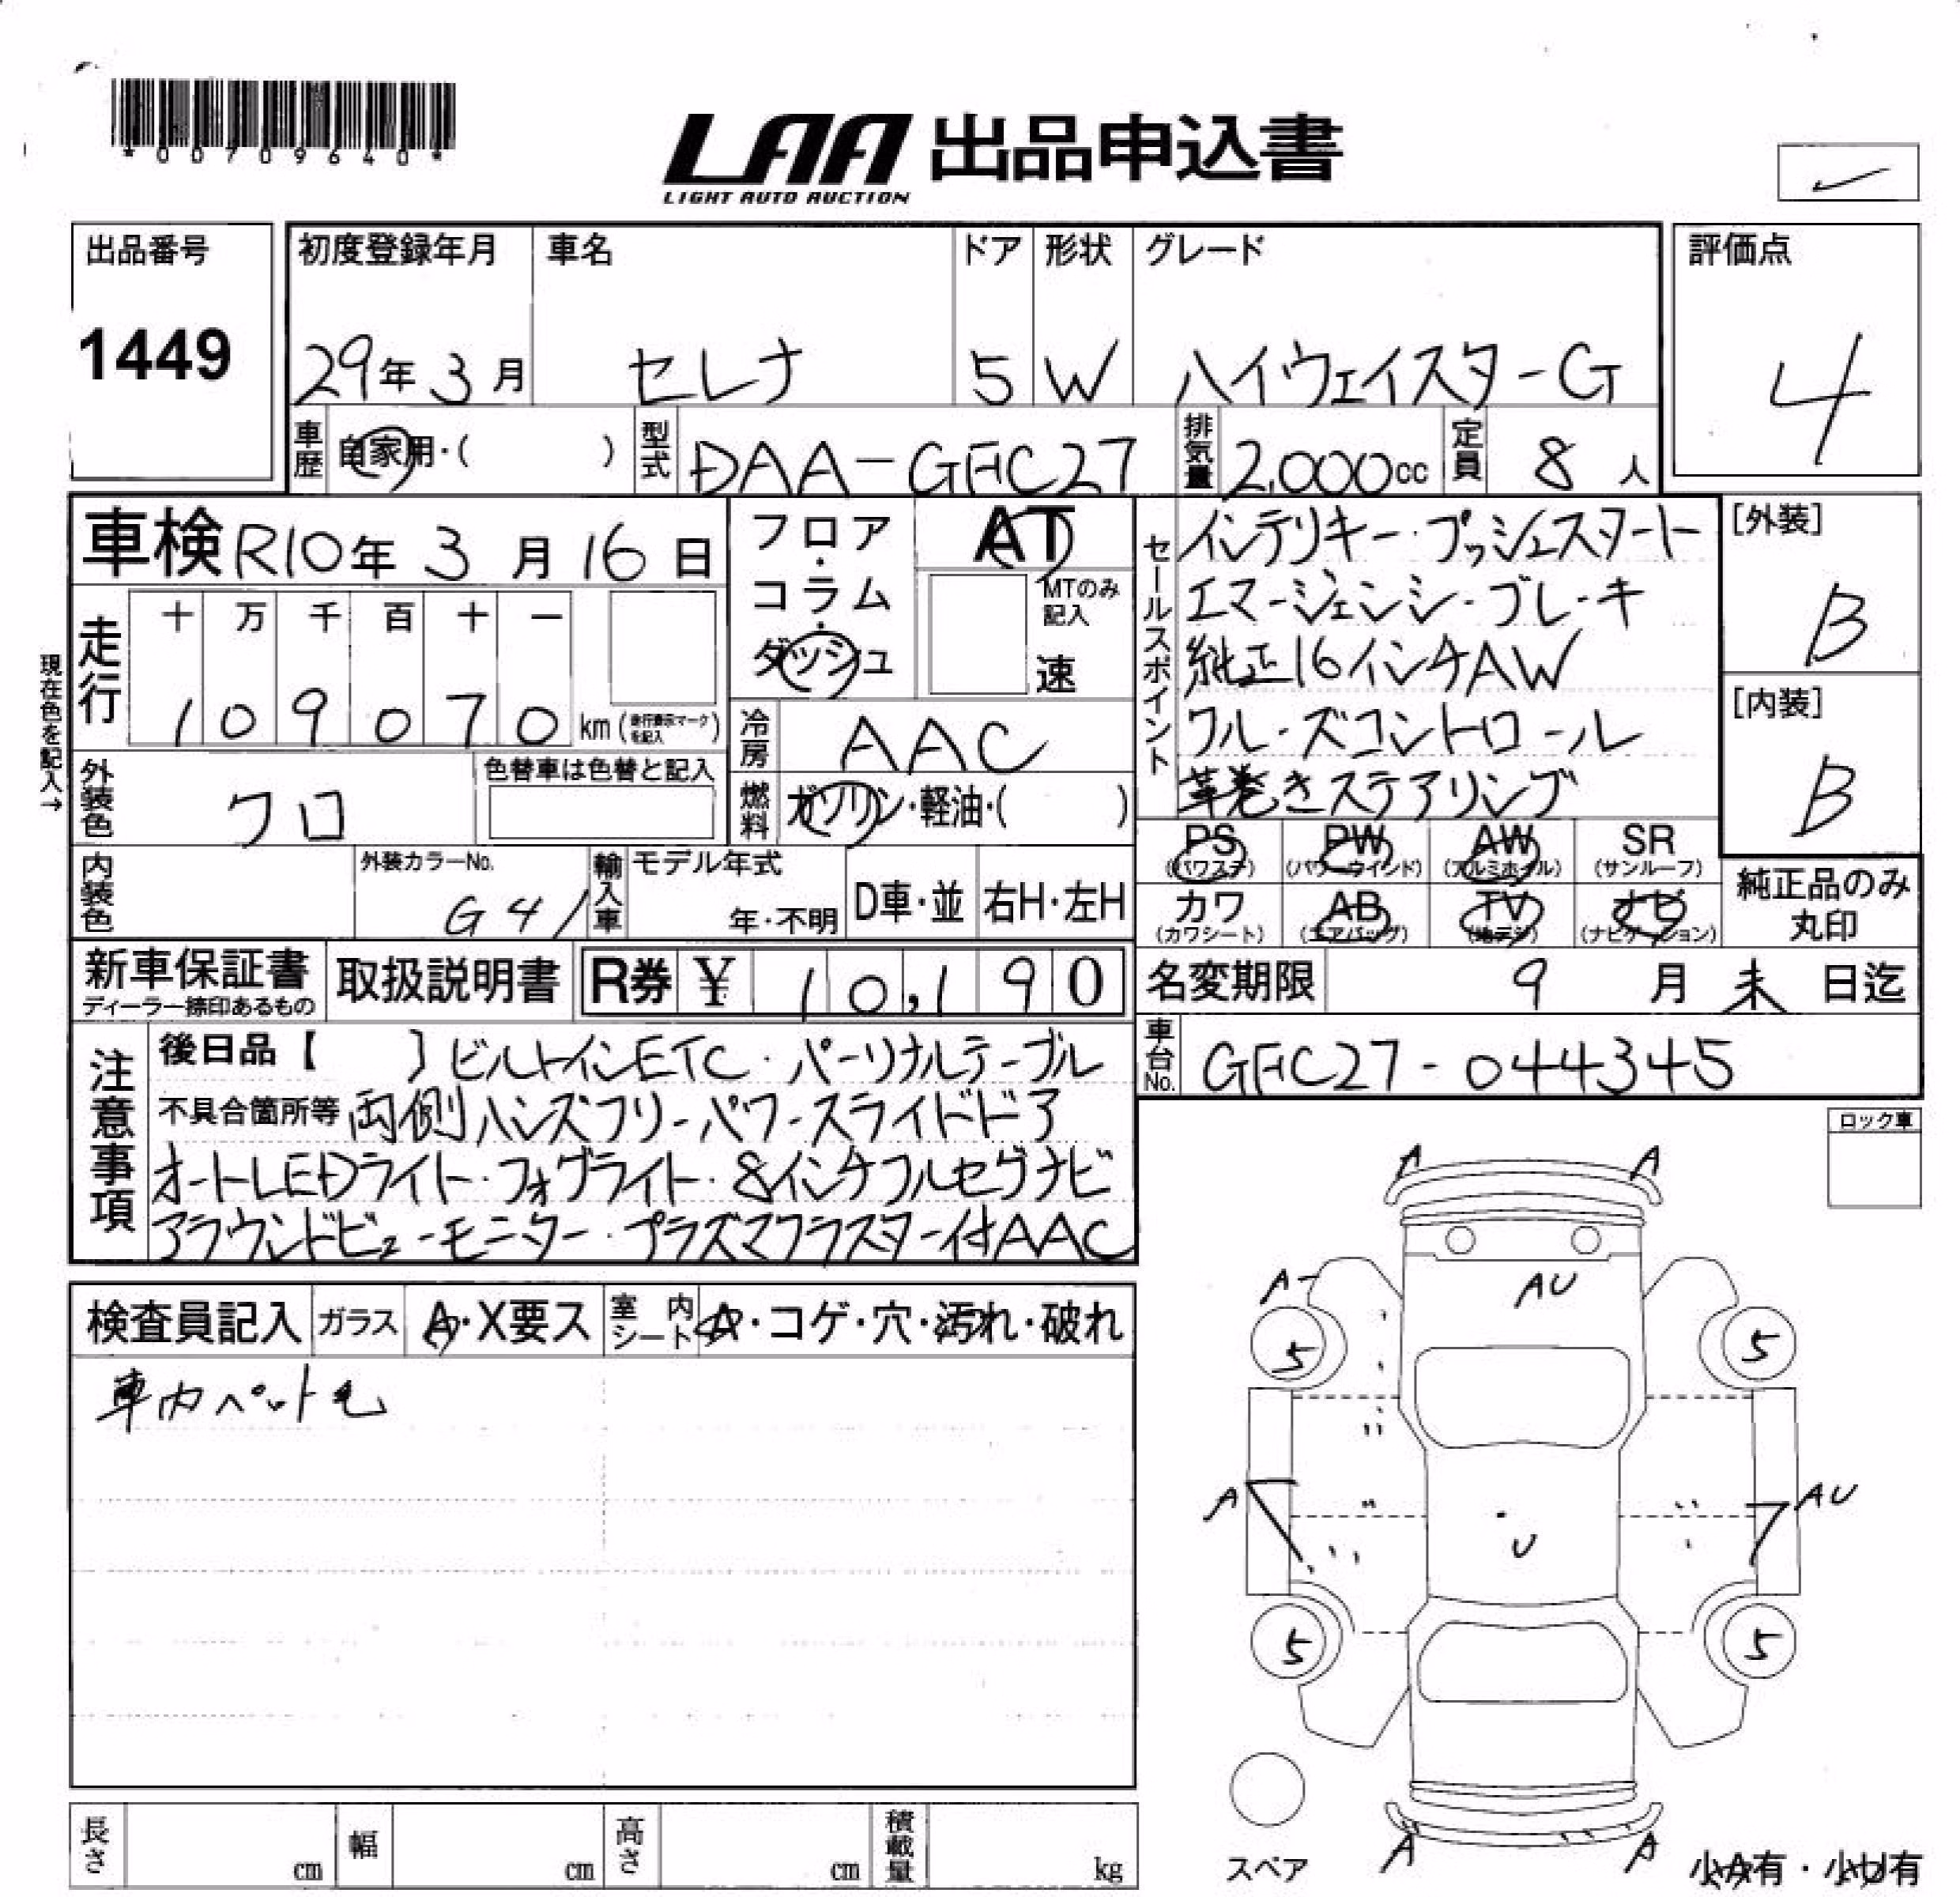 *00709640*
LAA 出品申込書
LIGHT AUTO AUCTION
出品番号
1449
初度登録年月
29年3月
車名
セレナ
ドア
5
形状
W
グレード
ハイウェイスターG
評価点
4
車歴
自家用・( )
型式
DAA-GFC27
排気量
2,000cc
定員
8人
車検 R10年3月16日
フロア・コラム・ダッシュ
AT
MTのみ記入
速
セールスポイント
インテリキー・プッシュスタート
エマージェンシーブレーキ
純正16インチAW
クルーズコントロール
革巻きステアリング
[外装]
B
[内装]
B
現在色を記入→
走行
十 万 千 百 十 一
1 0 9 0 7 0 km(走行表示マークを記入)
冷房
AAC
外装色
クロ
色替車は色替と記入
燃料
ガソリン・軽油・( )
PS
(パワステ)
PW
(パワーウインド)
AW
(アルミホイル)
SR
(サンルーフ)
カワ
(カワシート)
AB
(エアバッグ)
TV
(地デジ)
ナビ
(ナビゲーション)
純正品のみ丸印
内装色
外装カラーNo.
G41
輸入車
モデル年式
年・不明
D車・並
右H・左H
新車保証書
ディーラー捺印あるもの
取扱説明書
R券 ¥ 10,190
名変期限 9月末日迄
注意事項
後日品【 】ビルトインETC・パーソナルテーブル
不具合箇所等 両側ハンズフリーパワースライドドア
オートLEDライト・フォグライト・8インチフルセグナビ
アラウンドビューモニター・プラズマクラスター付AAC
車台No.
GFC27-044345
ロック車
検査員記入
ガラス
A・X要ス
室内シート
A・コゲ・穴・汚れ・破れ
車内ペット毛
A A
A
AU
5 5
A
AU
U
5 5
A A
スペア
小A有・小U有
長さ cm
幅 cm
高さ cm
積載量 kg